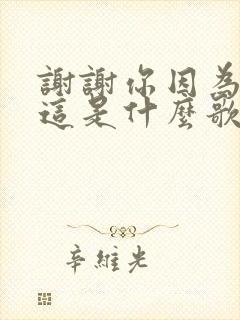 謝謝你因為
這是什麼歌
辛維光